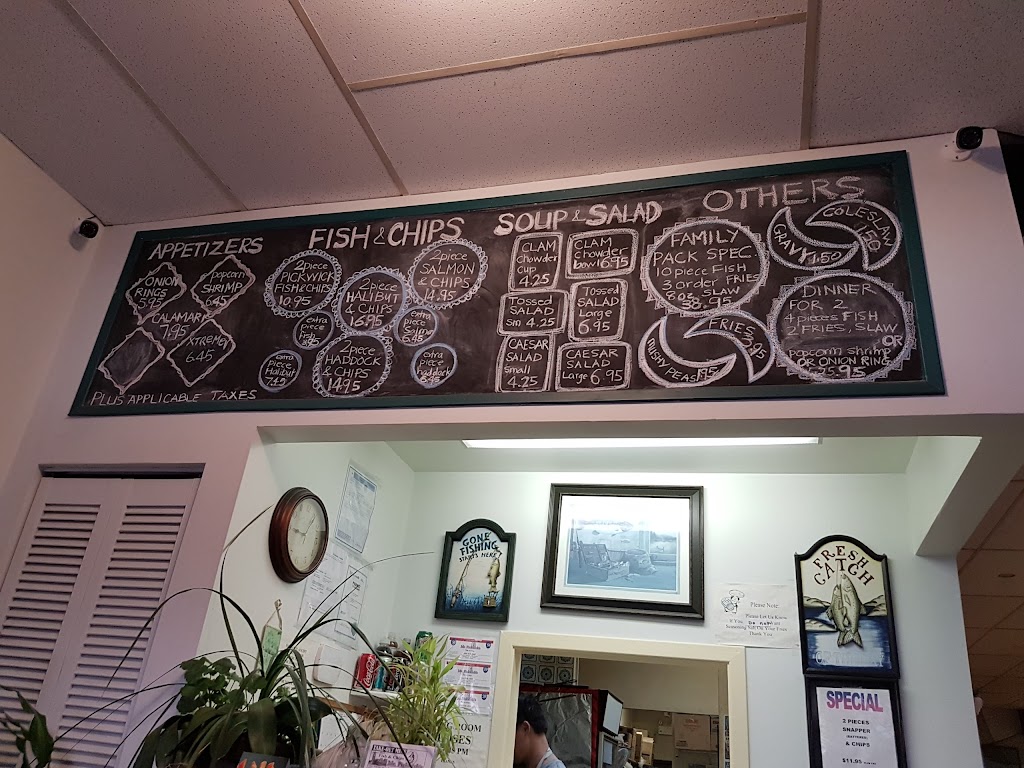 APPETIZERS
ONION
RINGS
5.95
popcorn
SHRIMP
6.45
CALAMARI
7.95
XTREME
6.45
PLUS APPLICABLE TAXES
FISH & CHIPS
2 piece
PICKWICK
FISH & CHIPS
10.95
2 piece
HALIBUT
& CHIPS
16.95
2 piece
SALMON
& CHIPS
14.95
extra
piece
fish
extra
piece
Salmon
6.45
extra
piece
Halibut
7.45
2 piece
HADDOCK
& CHIPS
14.95
extra
piece
haddock
6.45
SOUP & SALAD
CLAM
chowder
cup
4.25
CLAM
chowder
bowl 6.95
Tossed
SALAD
Sm 4.25
Tossed
SALAD
Large
6.95
CAESAR
SALAD
small
4.25
CAESAR
SALAD
Large 6.95
OTHERS
FAMILY
PACK SPEC.
10 piece FISH
3 order FRIES
8 oz. SLAW
38.95
GRAVY 1.50
COLESLAW
1.50
MUSHY PEAS 1.95
FRIES 3.95
DINNER
FOR 2
4 pieces FISH
2 FRIES, SLAW
OR
popcorn shrimp
OR ONION RING
GONE
FISHING
STARTS HERE
Please Note
Please Let Us Know
If You Do Not
Something Salt On Your Fries
Thank You
FRESH
CATCH
SPECIAL
2 PIECES
SNAPPER
& CHIPS
$11.95